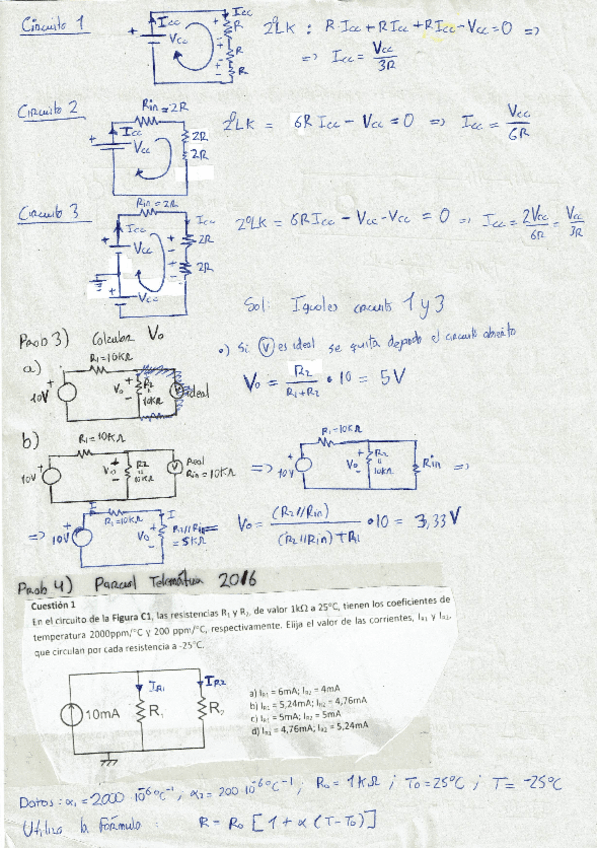 Circuito 1
Icc
Icc
Vcc
R
R
R
2ºLK : R Icc + R Icc + R Icc - Vcc = 0 =>
=> Icc = Vcc / 3R
Circuito 2
Rin = 2R
Icc
Vcc
2R
2R
2ºLK = 6R Icc - Vcc = 0 => Icc = Vcc / 6R
Circuito 3
Rin = 2R
Icc
Icc
Vcc
2R
2R
Vcc
2ºLK = 6R Icc - Vcc - Vcc = 0 => Icc = 2Vcc / 6R = Vcc / 3R
Sol: Iguales circuito 1 y 3
Prob 3) Calcular Vo
a)
R1 = 10KΩ
10V
Vo
R2
10KΩ
V
ideal
•) Si V es ideal se quita dejando el circuito abierto
Vo = R2 / R1 + R2 • 10 = 5V
b)
R1 = 10KΩ
10V
Vo
R2 = 10KΩ
V
Real
Rin = 10KΩ
=>
R1 = 10KΩ
10V
Vo
R2 = 10KΩ
Rin
=>
=> 10V
I
R1 = 10KΩ
I
Vo
R2//Rin = 5KΩ
Vo = (R2//Rin) / (R2//Rin) + R1 • 10 = 3,33V
Prob 4) Parcial Telemática 2016
Cuestión 1
En el circuito de la Figura C1, las resistencias R1 y R2, de valor 1kΩ a 25ºC, tienen los coeficientes de
temperatura 2000ppm/ºC y 200 ppm/ºC, respectivamente. Elija el valor de las corrientes, IR1 y IR2,
que circulan por cada resistencia a -25ºC.
10mA
IR1
R1
IR2
R2
a) IR1 = 6mA; IR2 = 4mA
b) IR1 = 5,24mA; IR2 = 4,76mA
c) IR1 = 5mA; IR2 = 5mA
d) IR1 = 4,76mA; IR2 = 5,24mA
Datos: α1 = 2000 10^-6 ºC^-1, α2 = 200 10^-6 ºC^-1; Ro = 1KΩ ; To = 25ºC ; T = -25ºC
Utiliza la fórmula : R = Ro [1 + α (T - To)]